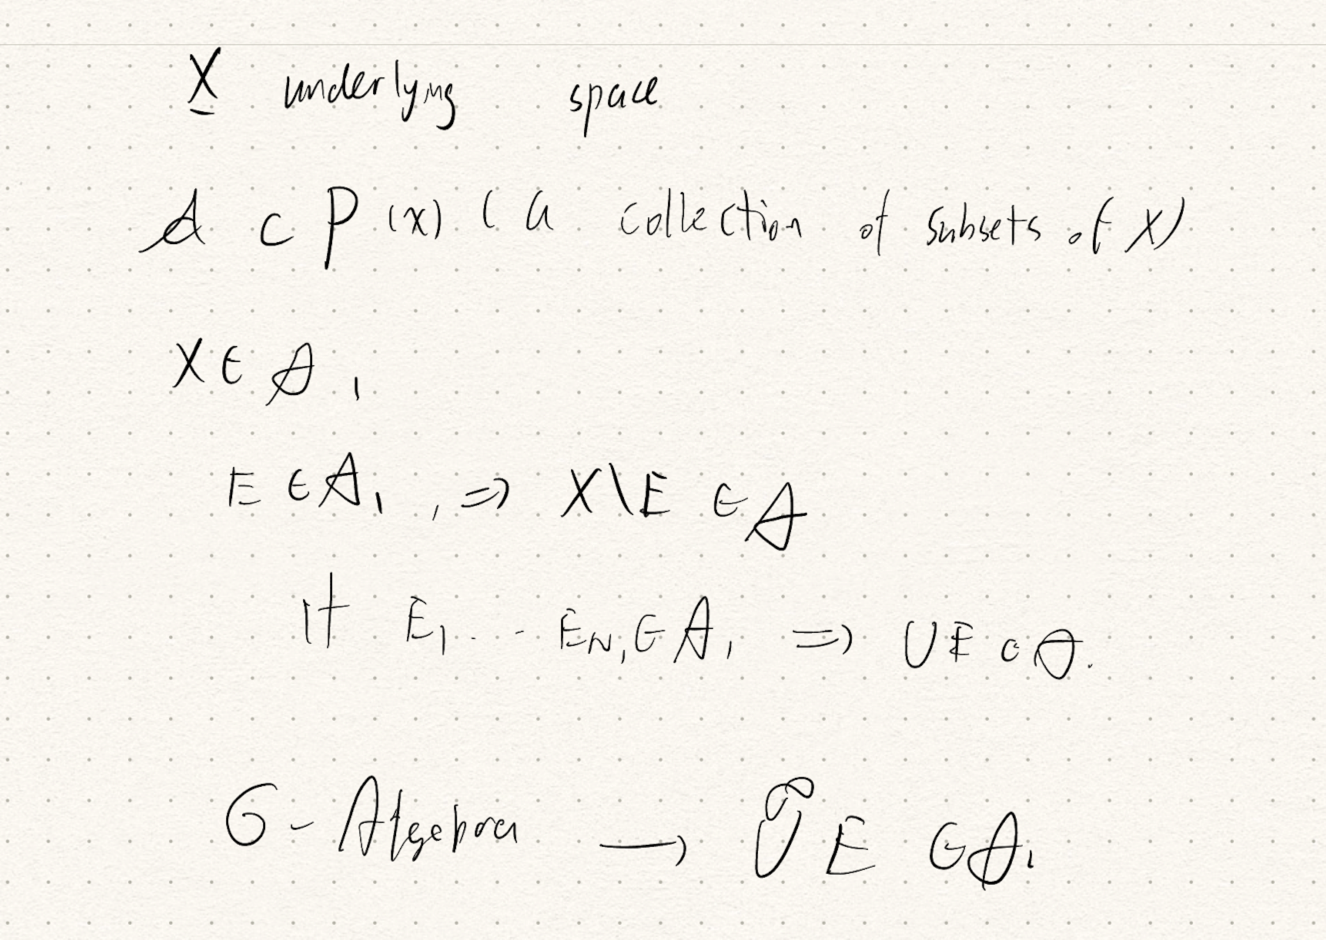 X underlying space
A ⊂ P(x) ( a collection of subsets of X)
X ∈ A,
E ∈ A, , ⇒ X\E ∈ A
If E₁ . . . E_N, ∈ A, ⇒ ∪E ∈ A.
σ - Algebra → ∪^∞ E ∈ A,